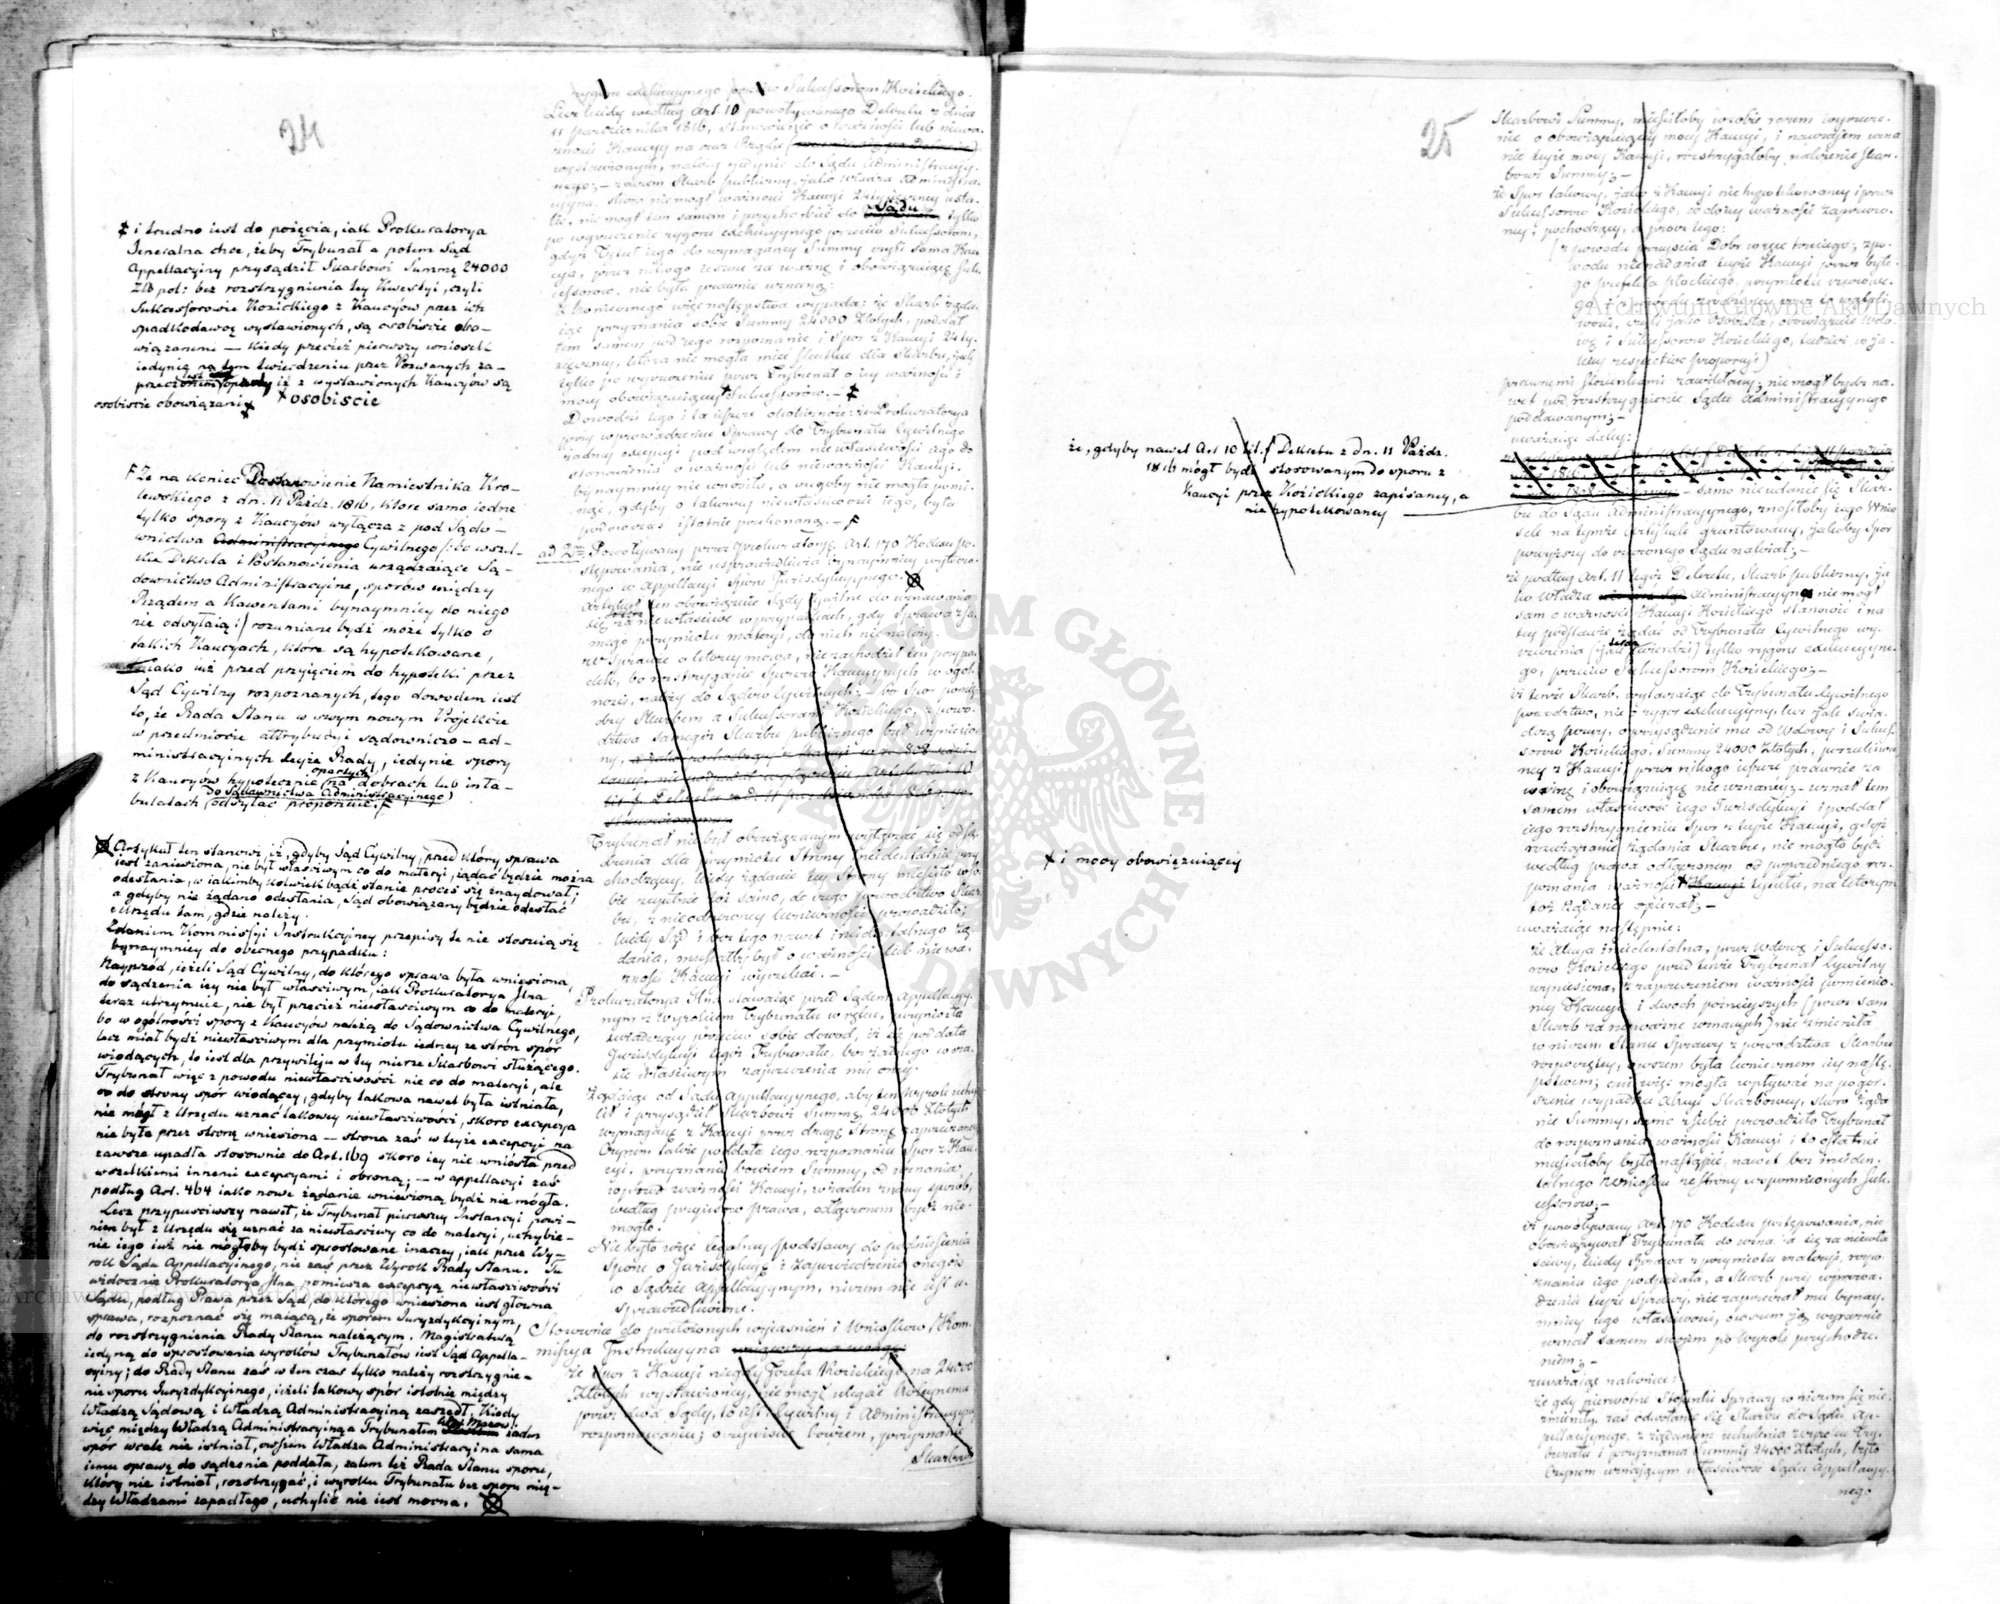 24
‡ i trudno iest do poięcia, iak Prokuratorya
Jeneralna chce, żeby Trybunał a potem Sąd
Appellacyiny przysądził Skarbowi Summę 24000
Złł pol: bez rozstrzygnienia tey Kwestyi, czyli
Sukcessorowie Kozickiego z Kaucyów przez ich
spadkodawcę wystawionych, są osobiscie obo-
wiązanemi — kiedy przecież pierwszy wniosek
iedynie na tym twierdzeniu przez Pozwanych za-
przeczonem iest oparty iż z wystawionych Kaucyów są
osobiscie obowiązani
+ osobiscie
F Że na koniec Postanowienie Namiestnika Kro-
lewskiego z dn. 11 Paźdz. 1816, które samo iedne
tylko spory z Kaucyów wyłącza z pod Sądo-
wnictwa Administracyinego Cywilnego /: bo wszel-
kie Dekreta i Postanowienia urządzaiące Są-
downictwo Administracyine, sporów między
Rządem a Kawentami bynaymniey do niego
nie odsyłaią :/ rozumiane bydź może tylko o
takich Kaucyach, które są hypotekowane,
iako iuż przed przyięciem do hypoteki przez
Sąd Cywilny rozpoznanych, tego dowodem iest
to, że Rada Stanu w swym nowym Projekcie
w przedmiocie attrybucyi sądowniczo-ad-
ministracyinych teyże Rady, iedynie spory
z Kaucyów hypotecznie opartych na dobrach lub inta-
bulatach do Sądownictwa Administracyinego
odsyłać proponuie. F
Artykuł ten stanowi, iż, gdyby Sąd Cywilny, przed który sprawa
iest zaniesiona, nie był właściwym co do materyi, żądać będzie można
odesłania, w iakimby kolwiek bądź stanie proces się znaydował;
a gdyby nie żądano odesłania, Sąd obowiązany będzie odesłać
z Urzędu tam, gdzie należy.
Zdaniem Kommissyi Instrukcyiney przepisy te nie stosuią się
bynaymniey do obecnego przypadku:
Nayprzód, ieżeli Sąd Cywilny, do którego sprawa była wniesiona,
do sądzenia iey nie był właściwym, iak Prokuratorya Jlna
teraz utrzymuie, nie był przecież niewłaściwym co do materyi,
bo w ogólności spory z Kaucyów należą do Sądownictwa Cywilnego,
lecz miał bydź niewłaściwym dla przymiotu iedney ze strón spór
wiodących, to iest dla przywileju w tey mierze Skarbowi służącego.
Trybunał więc z powodu niewłaściwości nie co do materyi, ale
co do strony spór wiodącey, gdyby takowa nawet była istniała,
nie mógł z Urzędu uznać takowey niewłaściwości, skoro excepcya
nie była przez stronę wniesiona — strona zaś w teyże excepcyi na
zawsze upadła stosownie do Art. 169 skoro iey nie wniosła przed
wszelkiemi innemi excepcyami i obroną; — w appellacyi zaś
podług Art. 464 iako nowe żądanie wniesioną bydź nie mogła.
Lecz przypuściwszy nawet, że Trybunał pierwszey Instancyi powi-
nien był z Urzędu się uznać za niewłaściwy co do materyi, uchybie-
nie iego iuż nie mógłoby bydź sprostowane inaczey, iak przez Wy-
rok Sądu Appellacyinego, nie zaś przez Wyrok Rady Stanu. Tu
widocznie Prokuratorya Jlna pomiesza excepcyą niewłaściwości
Sądu, podług Prawa przez Sąd, do którego wniesiona iest główna
sprawa, rozpoznać się maiącą, ze sporem Juryzdykcyinym,
do rozstrzygnienia Rady Stanu należącym. Magistraturą
iedyną do sprostowania wyroków Trybunałów iest Sąd Appella-
cyiny; do Rady Stanu zaś w ten czas tylko należy rozstrzygnie-
nie sporu Juryzdykcyinego, ieżeli takowy spór istotnie między
Władzą Sądową i Władzą Administracyiną zaszedł. Kiedy
więc między Władzą Administracyiną a Trybunałem żaden
spór wcale nie istniał, owszem Władza Administracyina sama
iemu sprawę do sądzenia poddała, zatem też Rada Stanu sporu,
który nie istniał, rozstrzygać, i wyroku Trybunału bez sporu mię-
dzy Władzami zapadłego, uchylić nie iest mocna.
rygoru exekucyinego przeciw Sukcessorom Kozickiego.
Lecz kiedy według Art. 10 powoływanego Dekretu z dnia
11 Października 1816, stanowienie o ważności lub niewa-
żności Kaucyi na rzecz Rządu
wystawionym, należy iedynie do Sądu Administracyi-
nego; — zatem Skarb publiczny, jako Władza Administra-
cyina, skoro niemógł ważności Kaucyi
nie mógł tem samem i przychodzić do Sądu tylko
po wyrzeczenie rygoru exekucyinego przeciw Sukcessorom,
gdyż Tytuł iego do wymaganey Summy czyli sama Kau-
cya, przez nikogo ieszcze za ważną i obowiązuiącą Suk-
cessorów, nie była prawnie uznaną;
Z koniecznego więc następstwa wypada: że Skarb żąda-
iąc przyznania sobie Summy 24000 Złotych, poddał
tem samem pod iego rozpoznanie i Spór z Kaucyi 24 ty-
sięczney, która nie mogła mieć skutku dla Skarbu, jak
tylko po wyrzeczeniu przez Trybunał o iey ważności i
mocy obowiązuiącey Sukcessorów. — ‡
Dowodzi tego i ta ieszcze okoliczność: że Prokuratorya
przy wprowadzeniu Sprawy do Trybunału Cywilnego
żadney excepcyi pod względem niewłaściwości iego do
stanowienia o ważności lub nieważności Kaucyi,
bynaymniey nie wnosiła, a więc by nie mogła pomi-
nąć, gdyby o takowey niewłaściwości iego, była
podówczas istotnie przekonaną. — F
ad 2um Powoływany przez Prokuratoryę Art. 170 Kodexu po-
stępowania, nie usprawiedliwia bynaymniey wytoczo-
nego w Appellacyi Sporu Jurisdykcyinego.
Artykuł ten obowiązuie Sądy Cywilne do uznawania
się za niewłaściwe w przypadkach, gdy Sprawa dla
samego przymiotu materyi, do nich nie należy.
w Sprawie o którey mowa, nie zachodził ten przypa-
dek, bo rozstrzyganie Sporów Kaucyinych w ogól-
ności, należy do Sądów Cywilnych; — bo Spór pomię-
dzy Skarbem a Sukcessorami Kozickiego, z powo-
dztwa samegoż Skarbu publicznego był wyniesio-
ny,
Trybunał nie był obowiązanym wyłączać się od Są-
dzenia dla przymiotu Strony incidentalnie przy-
chodzącey, kiedy żądanie tey Strony mieściło w so-
bie zupełnie toż samo, do czego powództwo Skar-
bu, z nieodzowney konieczności prowadziło;
kiedy Sąd i bez tego nawet incidentalnego żą-
dania, musiałby był o ważności lub niewa-
żności Kaucyi wyrzekać. —
Prokuratorya Jlna stawaiąc przed Sądem Appellacyi-
nym z Wyrokiem Trybunału w ręku, przyniosła
świadczący przeciw sobie dowód, iż się poddała
Jurisdykcyi tegoż Trybunału, bez żadnego wcza-
sie właściwym zaprzeczenia mu oney.
Żądaiąc od Sądu Appellacyinego, aby ten Wyrok uchy-
lił i przysądził Skarbowi Summę 24000 Złotych
wymaganą z Kaucyi przez drugą Stronę zaprzeczoney
Czynem także poddała iego rozpoznaniu Spór z Kau-
cyi, przyznanie bowiem Summy, od uznania
wprzód ważności Kaucyi, w żaden znany sposób,
według przepisów prawa, odłączonem bydź nie-
mogło.
Nie było więc legalney podstawy do podniesienia
Sporu o Jurisdykcyę i zaświadczenie onegoż
w Sądzie Appellacyinym, niczem nie jest u-
sprawiedliwione.
Stosownie do powyższonych wyiaśnień i Wniosków, Kom-
missya Instrukcyina
że spór z Kaucyi niegdy Józefa Kozickiego na 24000
Złotych wystawioney, nie mógł ulegać kolleynemu
przez dwa Sądy, to iest Cywilny i Administracyiny
rozpoznawaniu; oczywiście bowiem, przyznanie
Skarbowi
25
że, gdyby nawet Art 10 lit. f Dekretu z dn. 11 Paźdz.
1816 mógł bydź stosowanym do sporu z
Kaucyi przez Kozickiego zapisaney, a
nie hypotekowaney
+ i mocy obowiązuiącey
Skarbowi Summy, mieściłoby w sobie razem wyrzecze-
nie o obowiązuiącey mocy Kaucyi, i nawzajem uzna-
nie tejże mocy Kaucyi, rozstrzygałoby należenie Skar-
bowi Summy; —
że Spór takowy, jako z Kaucyi nie hypotekowaney i przez
Sukcessorów Kozickiego, co do iey ważności zaprzeczo-
ney, pochodzący, a przez tego:
(z powodu przejścia Dobr w ręce trzeciego; z po-
wodu nienadania tejże Kaucyi przez byłe-
go prefekta płockiego, przymiotu
prawnemi stosunkami zawikłany; nie mógł bydź na-
wet pod rozstrzygnienie Sądu Administracyinego
poddawanym; —
uważaiąc daley:
samo nieudanie się Skar-
bu do Sądu Administracyinego, znosiłoby iego Wnio-
sek na tymże Artykule gruntowany, jakoby Spór
powyższy do rzeczonego Sądu należał; —
że podług Art. 11 tegoż Dekretu, Skarb publiczny, ja-
ko Władza Administracyina nie mógł
sam o ważności Kaucyi Kozickiego stanowić i na
tey podstawie żądać od Trybunału Cywilnego wy-
rzeczenia (jak teraz twierdzi) tylko rygoru exekucyine-
go, przeciw Sukcessorom Kozickiego; —
iż tenże Skarb, wytaczaiąc do Trybunału Cywilnego
powództwo, nie o rygor exekucyiny, lecz jak świa-
dczą pozwy, o przysądzenie mu od Wdowy i Sukces-
sorów Kozickiego, Summy 24000 Złotych, poszukiwa-
ney z Kaucyi przez nikogo ieszcze prawnie za
ważną i obowiązuiącą nie uznaney; — uznał tem
samem właściwość iego Jurisdykcyi i poddał
iego rozstrzygnieniu Spór z tejże Kaucyi, gdyż
rozwiązanie żądania Skarbu, nie mogło bydź
według prawa odłączonem od poprzedniego roz-
poznania ważności + Kaucyi tytułu, na którym
toż żądanie opierał; —
uważaiąc następnie:
że Akcya incidentalna, przez Wdowę i Sukcesso-
rów Kozickiego przed tenże Trybunał Cywilny
wyniesiona, z zaprzeczeniem ważności pomienio-
ney Kaucyi i dwóch późnieyszych (przez sam
Skarb za nieważne uznanych) nie zmieniła
w niczem Stanu Sprawy z powództwa Skarbu
rozpoczętey, owszem była koniecznem iey nastę-
pstwem; ani więc mogła wpływać na pogor-
szenie wypadku Akcyi Skarbowey, skoro żąda-
nie Summy, samo z siebie prowadziło Trybunał
do rozpoznania ważności Kaucyi i to ostatnie
musiałoby było nastąpić, nawet bez inciden-
talnego wniosku ze strony wspomnionych Suk-
cessorów; —
iż powoływany Art. 170 Kodexu postępowania, nie
obowiązywał Trybunału do uznania się za niewła-
ściwy, kiedy Sprawa z przymiotu materyi, rozpo-
znaniu iego podpadała, a Skarb przy wprowa-
dzeniu tejże Sprawy, nie zaprzeczał mu bynay-
mniey tego właściwości, owszem ją wyraźnie
uznał samem swojem po Wyrok przychodze-
niem; —
uważaiąc nakoniec:
że gdy pierwotne Stosunki Sprawy w niczem się nie-
zmieniły, zaś odwołanie się Skarbu do Sądu Ap-
pellacyinego, z żądaniem uchylenia wyroku Try-
bunału i przyznania Summy 24000 Złotych, było
Czynem uznaiącym właściwość Sądu Appellacyi-
nego
Archiwum Główne Akt Dawnych
ARCHIWUM GŁÓWNE AKT DAWNYCH
Archiwum Główne Akt Dawnych